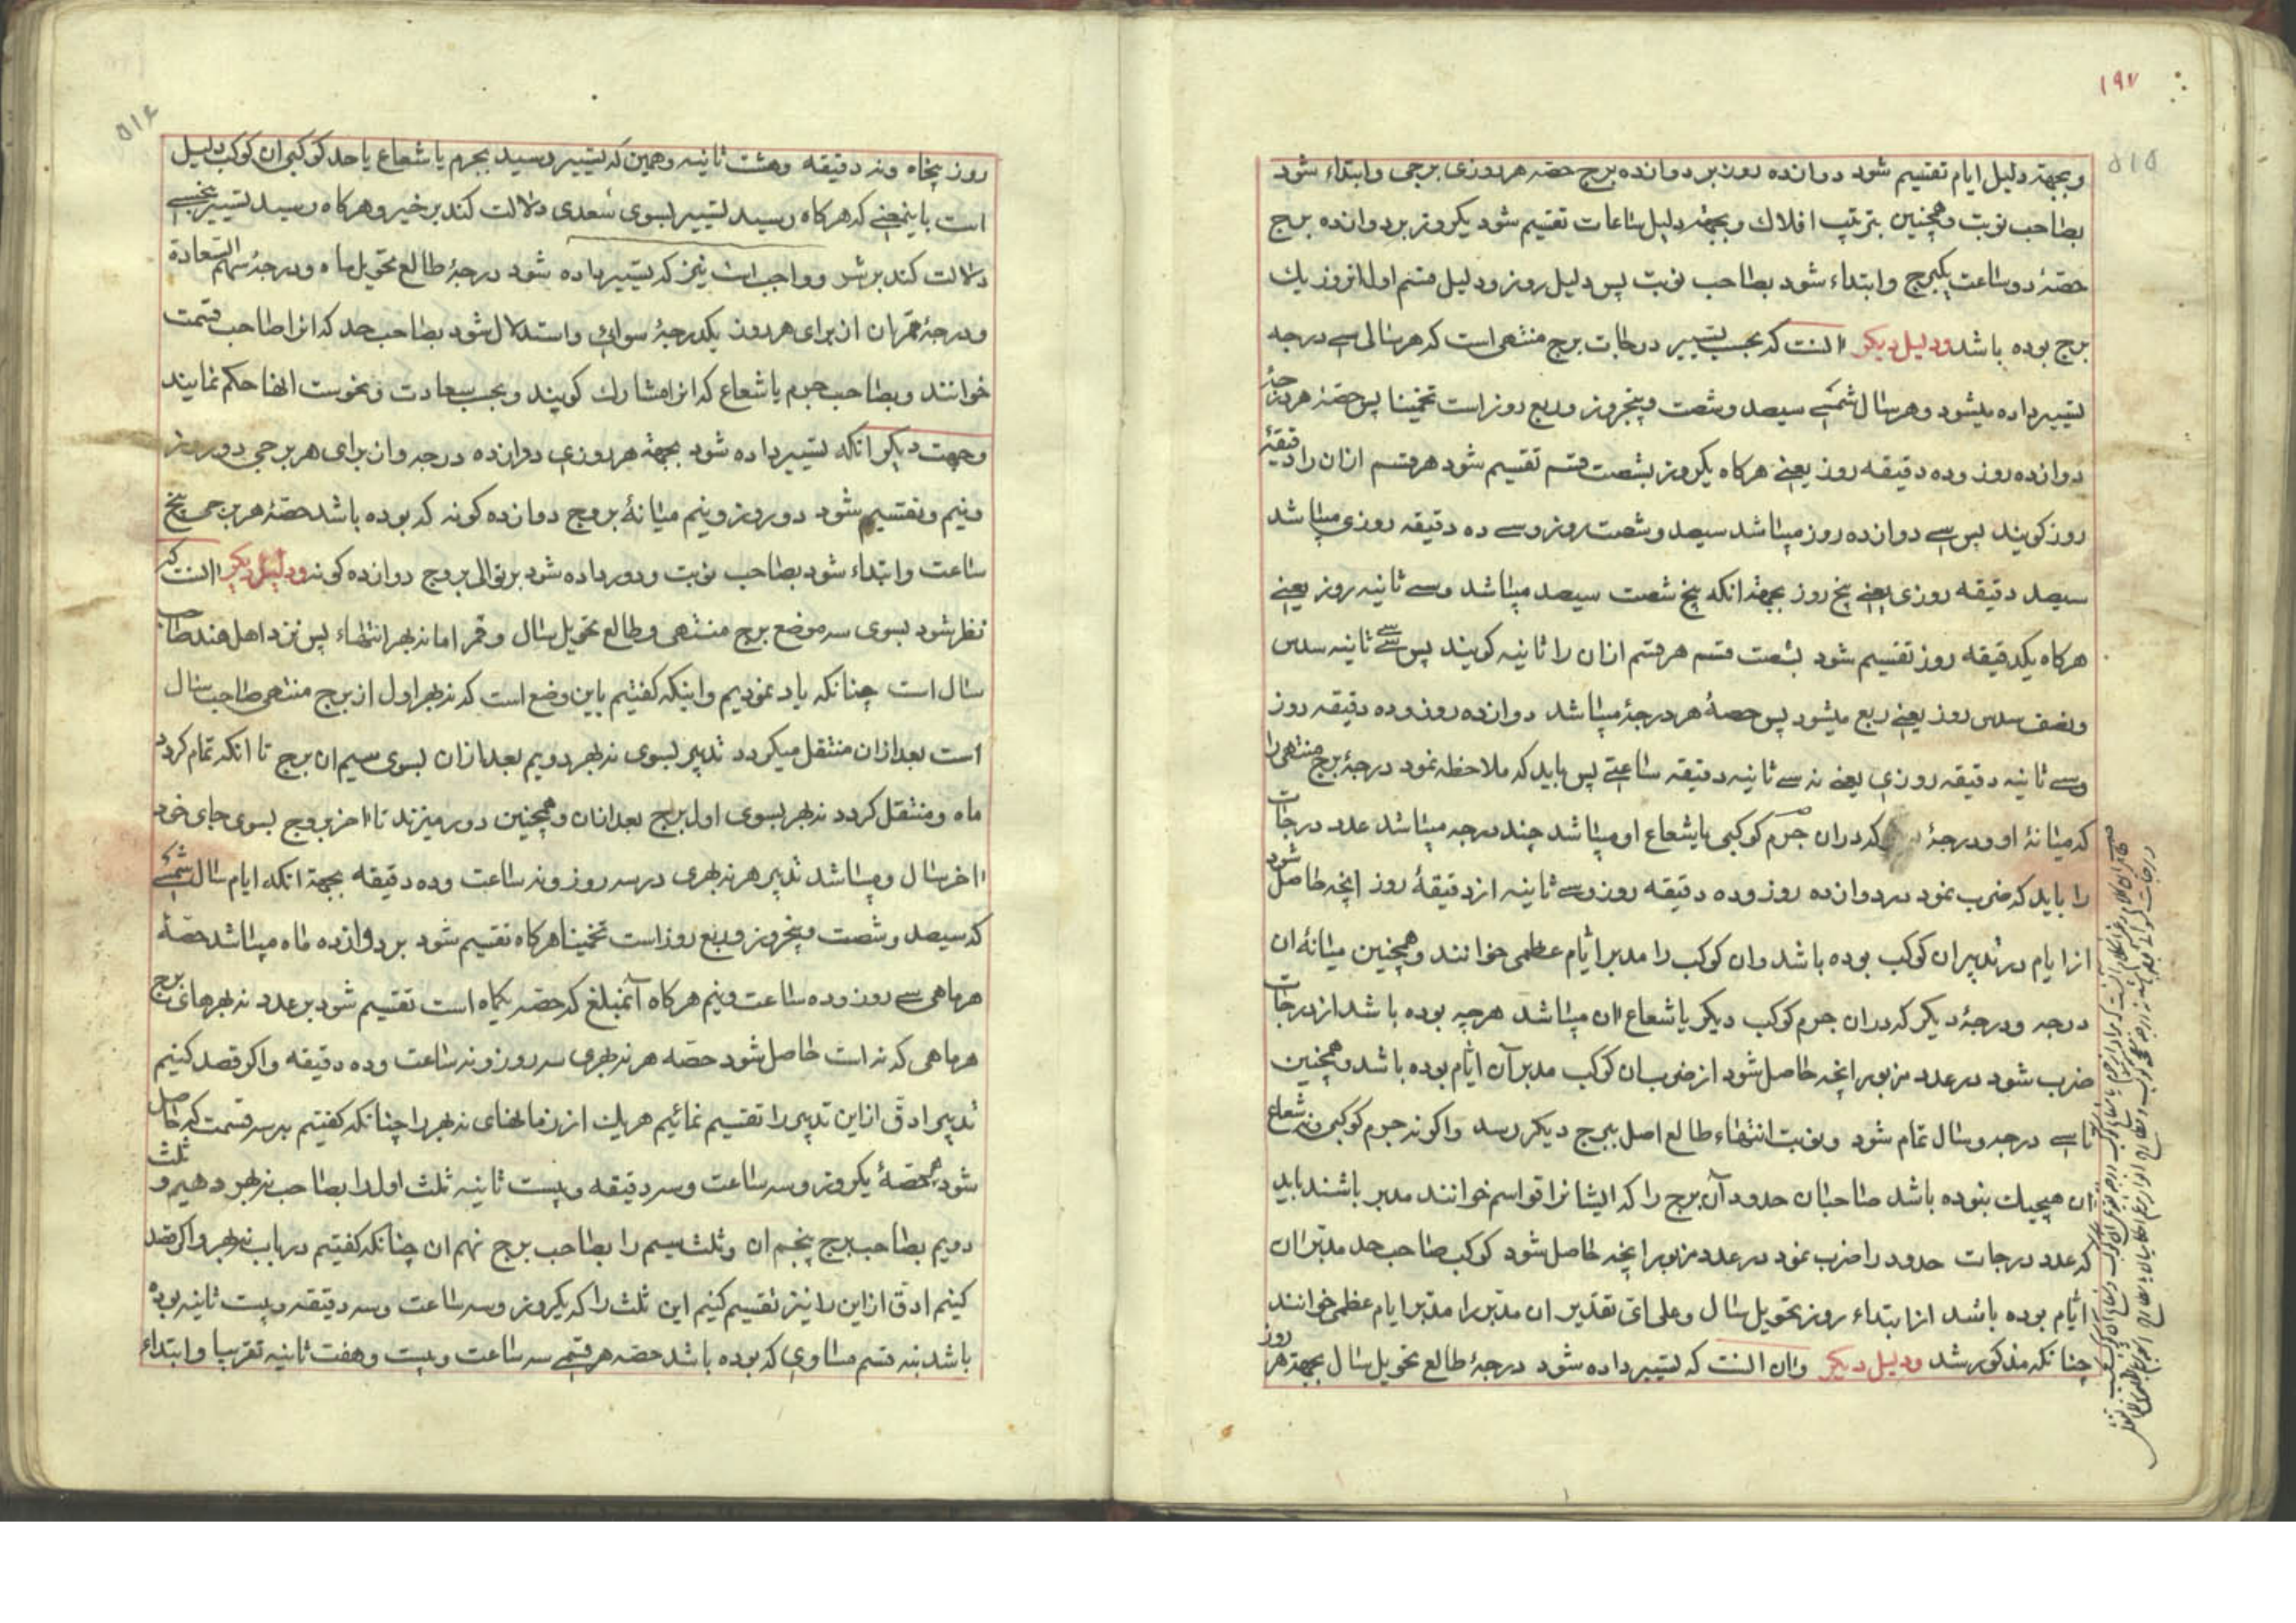 ۱۹۷
۵۱۵
و بجهة دلیل ایام تقسیم شود دوازده روز بر دوازده برج حصه هر روزی برجی و ابتداء شود
بصاحب نوبت و همچنین بترتیب افلاك و بجهة دلیل ساعات تقسیم شود یکروز بر دوازده برج
حصّۀ دو ساعت یکبرج و ابتداء شود بصاحب نوبت پس دلیل روز و دلیل قسم اول از روز یك
برج بوده باشد ودلیل دیکر انست که بحسب تسییر درجات برج منتهی است که هر سالی سی درجه
تسییر داده میشود و هر سال شمسی سیصد و شصت و پنجروز و ربع روز است تخمینا پس حصّۀ هر درجۀ
دوازده روز و ده دقیقه روز یعنی هرکاه یکروز بشصت قسم تقسیم شود هر قسم ازان را دقیقۀ
روز کویند پس سی دوازده روز میباشد سیصد و شصت روز و سی ده دقیقه روزی میباشد
سیصد دقیقه روزی یعنی پنج روز بجهة انکه پنج شصت سیصد میباشد و سی ثانیه روز یعنی
هرکاه یکدقیقه روز تقسیم شود بشصت قسم هر قسم ازان را ثانیه کویند پس سی سی ثانیه سدس
و نصف سدس روز یعنی ربع میشود پس حصۀ هر درجۀ میباشد دوازده روز و ده دقیقه روز
و سی ثانیه دقیقه روزی یعنی نه سی ثانیه دقیقه ساعتی پس باید که ملاحظه نمود درجۀ برج منتهی را
که میانۀ او و درجۀ که دران جرم کوکبی یا شعاع او میباشد چند درجه میباشد عدد درجات
را باید که ضرب نمود در دوازده روز و ده دقیقه روز و سی ثانیه از دقیقۀ روز انچه حاصل شود
از ایام در تدبیر ان کوکب بوده باشد وان کوکب را مدبر ایّام عظمی خوانند و همچنین میانۀ ان
درجه و درجۀ دیکر که دران جرم کوکب دیکر یا شعاع ان میباشد هرچه بوده باشد از درجات
ضرب شود در عدد مزبور انچه حاصل شود از ضرب ان کوکب مدبر آن ایّام بوده باشد و همچنین
تا سی درجه و سال تمام شود و نوبت انتهاء طالع اصل ببرج دیکر رسد و اکر نه جرم کوکبی و نه شعاع
ان هیچیك نبوده باشد صاحبان حدود آن برج را که ایشانرا قواسم خوانند مدبر باشند باید
که عدد درجات حدود را ضرب نمود در عدد مزبور انچه حاصل شود کوکب صاحب حد مدبّر ان
ایّام بوده باشد از ابتداء روز تحویل سال و علی ایّ تقدیر ان مدبّر را مدبّر ایام عظمی خوانند
چنانکه مذکور شد ودلیل دیکر وان انست که تسییر داده شود درجۀ طالع تحویل سال بجهة هر روز
۵۱۶
روز پنجاه و نه دقیقه و هشت ثانیه و همین که تسییر رسید بجرم یا شعاع یا حد کوکبی ان کوکب دلیل
است باینمعنی که هرکاه رسید تسییر بسوی سُعدی دلالت کند بر خیر و هرکاه رسید تسییر بنحسی
دلالت کند بر شر و واجب است نیز که تسییر داده شود درجۀ طالع تحویل ماه و درجۀ سهم السّعادة
و درجۀ قمر ان از برای هر روز یکدرجۀ سوائی و استدلال شود بصاحب حد که انرا صاحب قسمت
خوانند و بصاحب جرم یا شعاع که انرا مشارك کویند و بحسب سعادت و نحوست انها حکم نمایند
وجهت دیکر انکه تسییر داده شود بجهة هر روزی دوازده درجه وان برای هر برجی دو روز
و نیم و تقسیم شود دو روز و نیم میانۀ بروج دوازده کونه که بوده باشد حصّۀ هر برجی پنج
ساعت و ابتداء شود بصاحب نوبت و دور داده شود بر توالی بروج دوازده کونه ودلیل دیکر انست که
نظر شود بسوی سه موضع برج منتهی و طالع تحویل سال و قمر اما نه بهر انتهاء پس نزد اهل هند صاحب
سال است چنانکه یاد نمودیم و اینکه کفتیم باین وضع است که نه بهر اول از برج منتهی صاحب سال
است بعد ازان منتقل میکردد تدبیر بسوی نه بهر دویم بعد ازان بسوی سیم ان برج تا انکه تمام کردد
ماه و منتقل کردد نه بهر بسوی اول برج بعد ازان و همچنین دور میزند تا اخر بروج بسوی جای خود
اخر سال و میباشد تدبیر هر نه بهری در سه روز و نه ساعت و ده دقیقه بجهة انکه ایام سال شمسی
که سیصد و شصت و پنجروز و ربع روز است تخمینا هرکاه تقسیم شود بر دوازده ماه میباشد حصّۀ
هر ماهی سی روز و ده ساعت و نیم هرکاه آنمبلغ که حصّه یکماه است تقسیم شود بر عدد نه بهرهای برج
هر ماهی که نه است حاصل شود حصّه هر نه بهری سه روز و نه ساعت و ده دقیقه و اکر قصد کنیم
تدبیر ادقّ از این تدبیر را تقسیم نمائیم هریك از زمانهای نه بهر را چنانکه کفتیم بر سه قسمت که حاصل
شود حصّۀ یکروز و سه ساعت و سه دقیقه و بیست ثانیه ثلث اول را بصاحب نه بهر دهیم و ثلث
دویم بصاحب برج پنجم ان و ثلث سیم را بصاحب برج نهم ان چنانکه کفتیم در باب نه بهر و اکر قصد
کنیم ادقّ از این را نیز تقسیم کنیم این ثلث را که یکروز و سه ساعت و سه دقیقه و بیست ثانیه بوده
باشد بنه قسم مساوی که بوده باشد حصّه هر قسمی سه ساعت و بیست و هفت ثانیه تقریبا و ابتداء